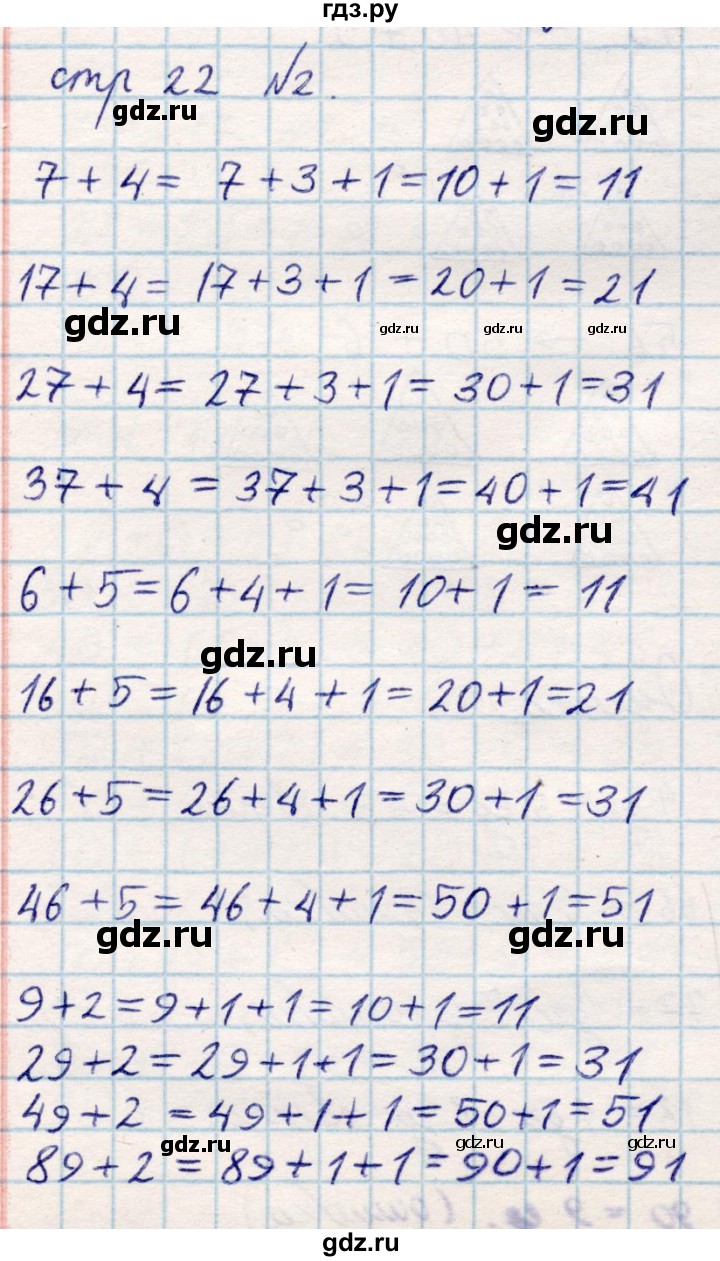 гдз.ру
стр 22 №2.
gdz.ru
gdz.ru
7 + 4 = 7 + 3 + 1 = 10 + 1 = 11
17 + 4 = 17 + 3 + 1 = 20 + 1 = 21
gdz.ru
gdz.ru
gdz.ru
gdz.ru
27 + 4 = 27 + 3 + 1 = 30 + 1 = 31
37 + 4 = 37 + 3 + 1 = 40 + 1 = 41
gdz.ru
6 + 5 = 6 + 4 + 1 = 10 + 1 = 11
gdz.ru
16 + 5 = 16 + 4 + 1 = 20 + 1 = 21
26 + 5 = 26 + 4 + 1 = 30 + 1 = 31
46 + 5 = 46 + 4 + 1 = 50 + 1 = 51
gdz.ru
gdz.ru
9 + 2 = 9 + 1 + 1 = 10 + 1 = 11
29 + 2 = 29 + 1 + 1 = 30 + 1 = 31
49 + 2 = 49 + 1 + 1 = 50 + 1 = 51
gdz.ru
gdz.ru
gdz.ru
89 + 2 = 89 + 1 + 1 = 90 + 1 = 91
gdz.ru